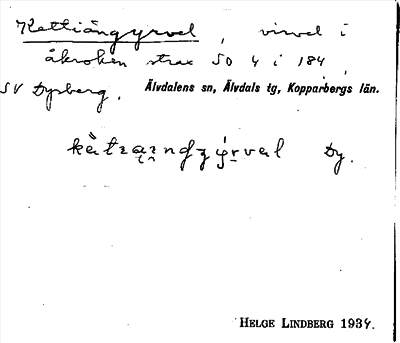 Kettiängyrvel, virvel i
åkroken strax SO 4 i 184,
SV Dysberg. Älvdalens sn, Älvdals tg, Kopparbergs län.
Dy.
HELGE LINDBERG 1934.